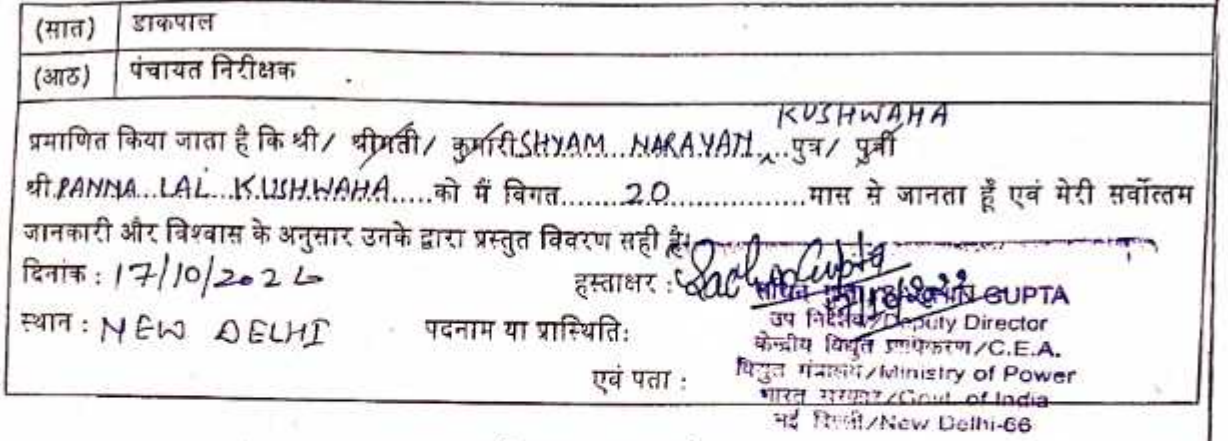 (सात) डाकपाल
(आठ) पंचायत निरीक्षक
KUSHWAHA
प्रमाणित किया जाता है कि श्री/ श्रीमती/ कुमारी SHYAM NARAYAN पुत्र/ पुत्री
श्री PANNA LAL KUSHWAHA.....को मैं विगत........20.................मास से जानता हूँ एवं मेरी सर्वोत्तम
जानकारी और विश्वास के अनुसार उनके द्वारा प्रस्तुत विवरण सही है।
दिनांक : 17/10/202 हस्ताक्षर : Sachin Gupta
SACHIN GUPTA
स्थान : NEW DELHI पदनाम या प्रास्थिति:
उप निदेशक/Deputy Director
केन्द्रीय विद्युत प्राधिकरण/C.E.A.
एवं पता :
विद्युत मंत्रालय/Ministry of Power
भारत सरकार/Govt. of India
नई दिल्ली/New Delhi-66